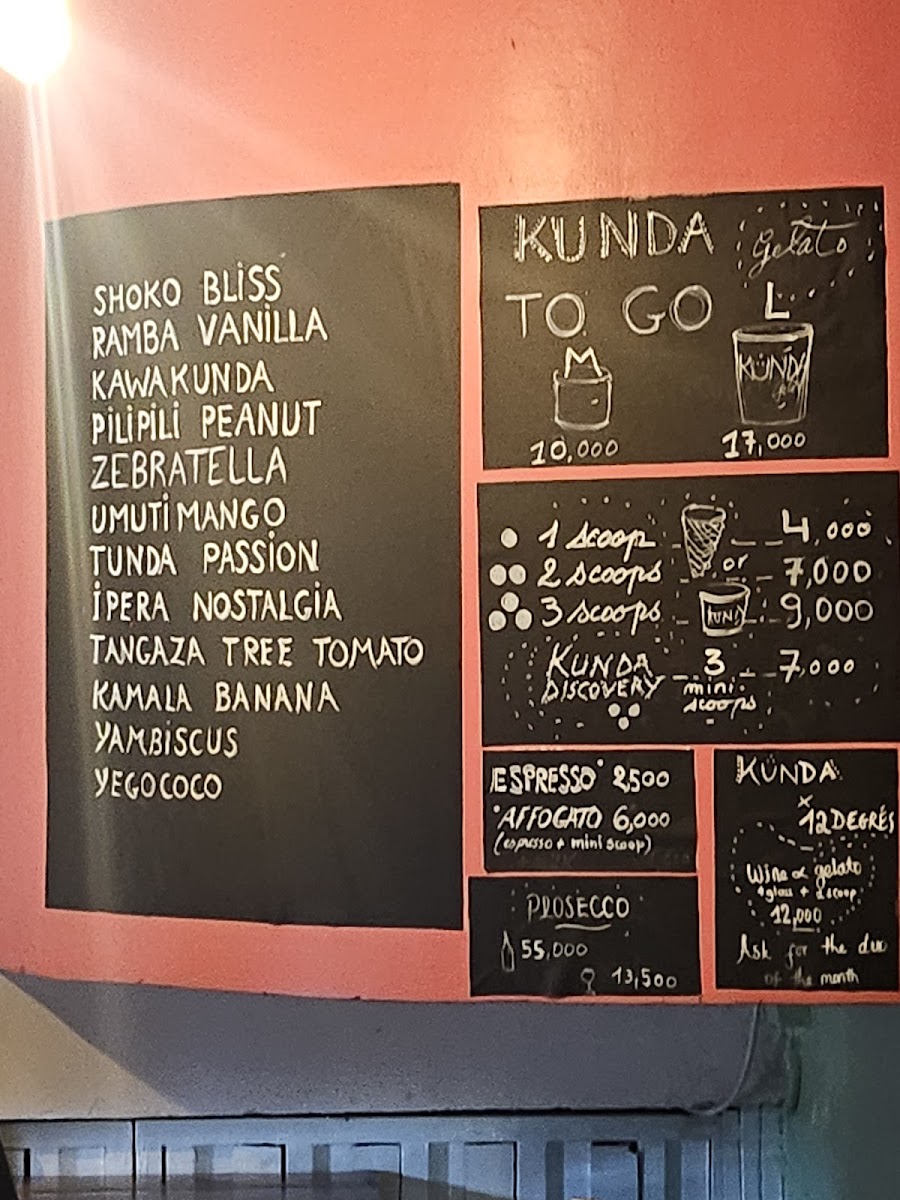 SHOKO BLISS
RAMBA VANILLA
KAWAKUNDA
PILIPILI PEANUT
ZEBRATELLA
UMUTI MANGO
TUNDA PASSION
IPERA NOSTALGIA
TANGAZA TREE TOMATO
KAMALA BANANA
YAMBISCUS
YEGOCOCO
KUNDA gelato
TO GO
M L
KUNDA
10,000 17,000
1 scoop 4,000
or
2 scoops 7,000
3 scoops KUNDA 9,000
KUNDA DISCOVERY 3 mini scoops 7,000
ESPRESSO 2,500
AFFOGATO 6,000
(espresso + mini scoop)
PROSECCO
55,000
13,500
KUNDA
x
12 DEGRÉS
Wine & gelato
1 glass + 1 scoop
12,000
Ask for the duo
of the month